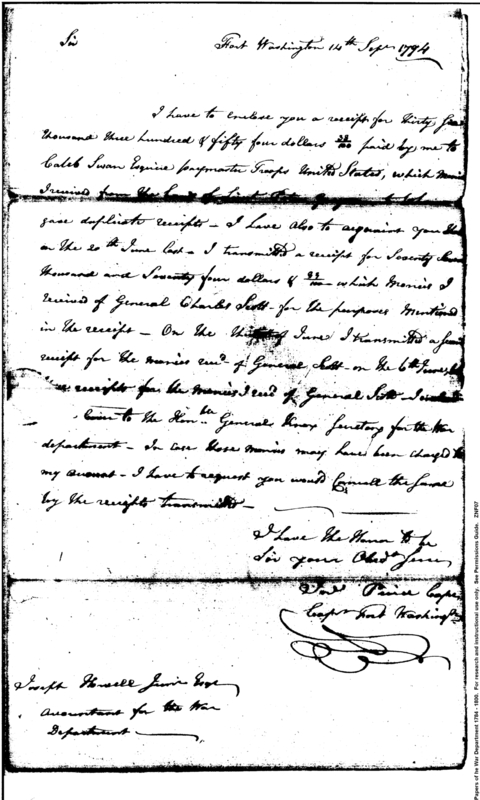 Sir Fort Washington 14th Sepr 1794
I have to enclose you a receipt for thirty
thousand three hundred & fifty four dollars 38/100 paid by me to
Caleb Swan Esquire paymaster Troops United States, which
I received from the hand of
gave duplicate receipts – I have also to acquaint you
on the 20th June last – I transmitted a receipt for Seventy
thousand and Seventy four dollars & which Monies I
received of General Charles Scott – for the purposes Mentioned
in the receipt – On the of June I transmitted a
receipt for the monies recd of General Scott – on the 6th June,
receipts for the Monies I recd of General Scott – I
to the Honble General Knox Secretary for the War
department – In case those monies may have been charged to
my account – I have to request you would Cancell the Same
by the receipts transmitted –
I have the Honor to be
Sir your Obedt
Peirce Capn
Capn Fort Washington
Joseph Howell Junr Esqr
Accountant for the War
Department
Papers of the War Department 1784 - 1800. For research and instructional use only. See Permissions Guide. ZNP07